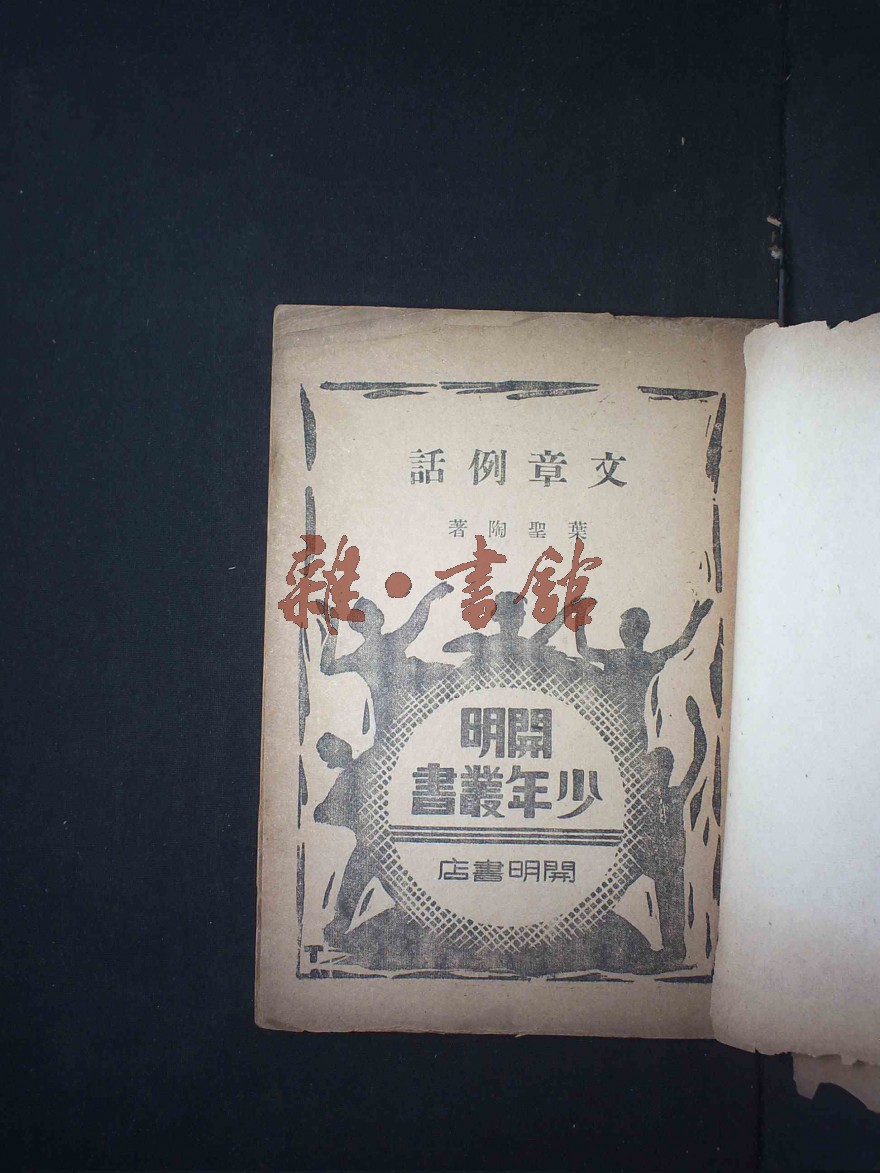 文章例話
葉聖陶著
雜·書館
開明
少年叢書
開明書店